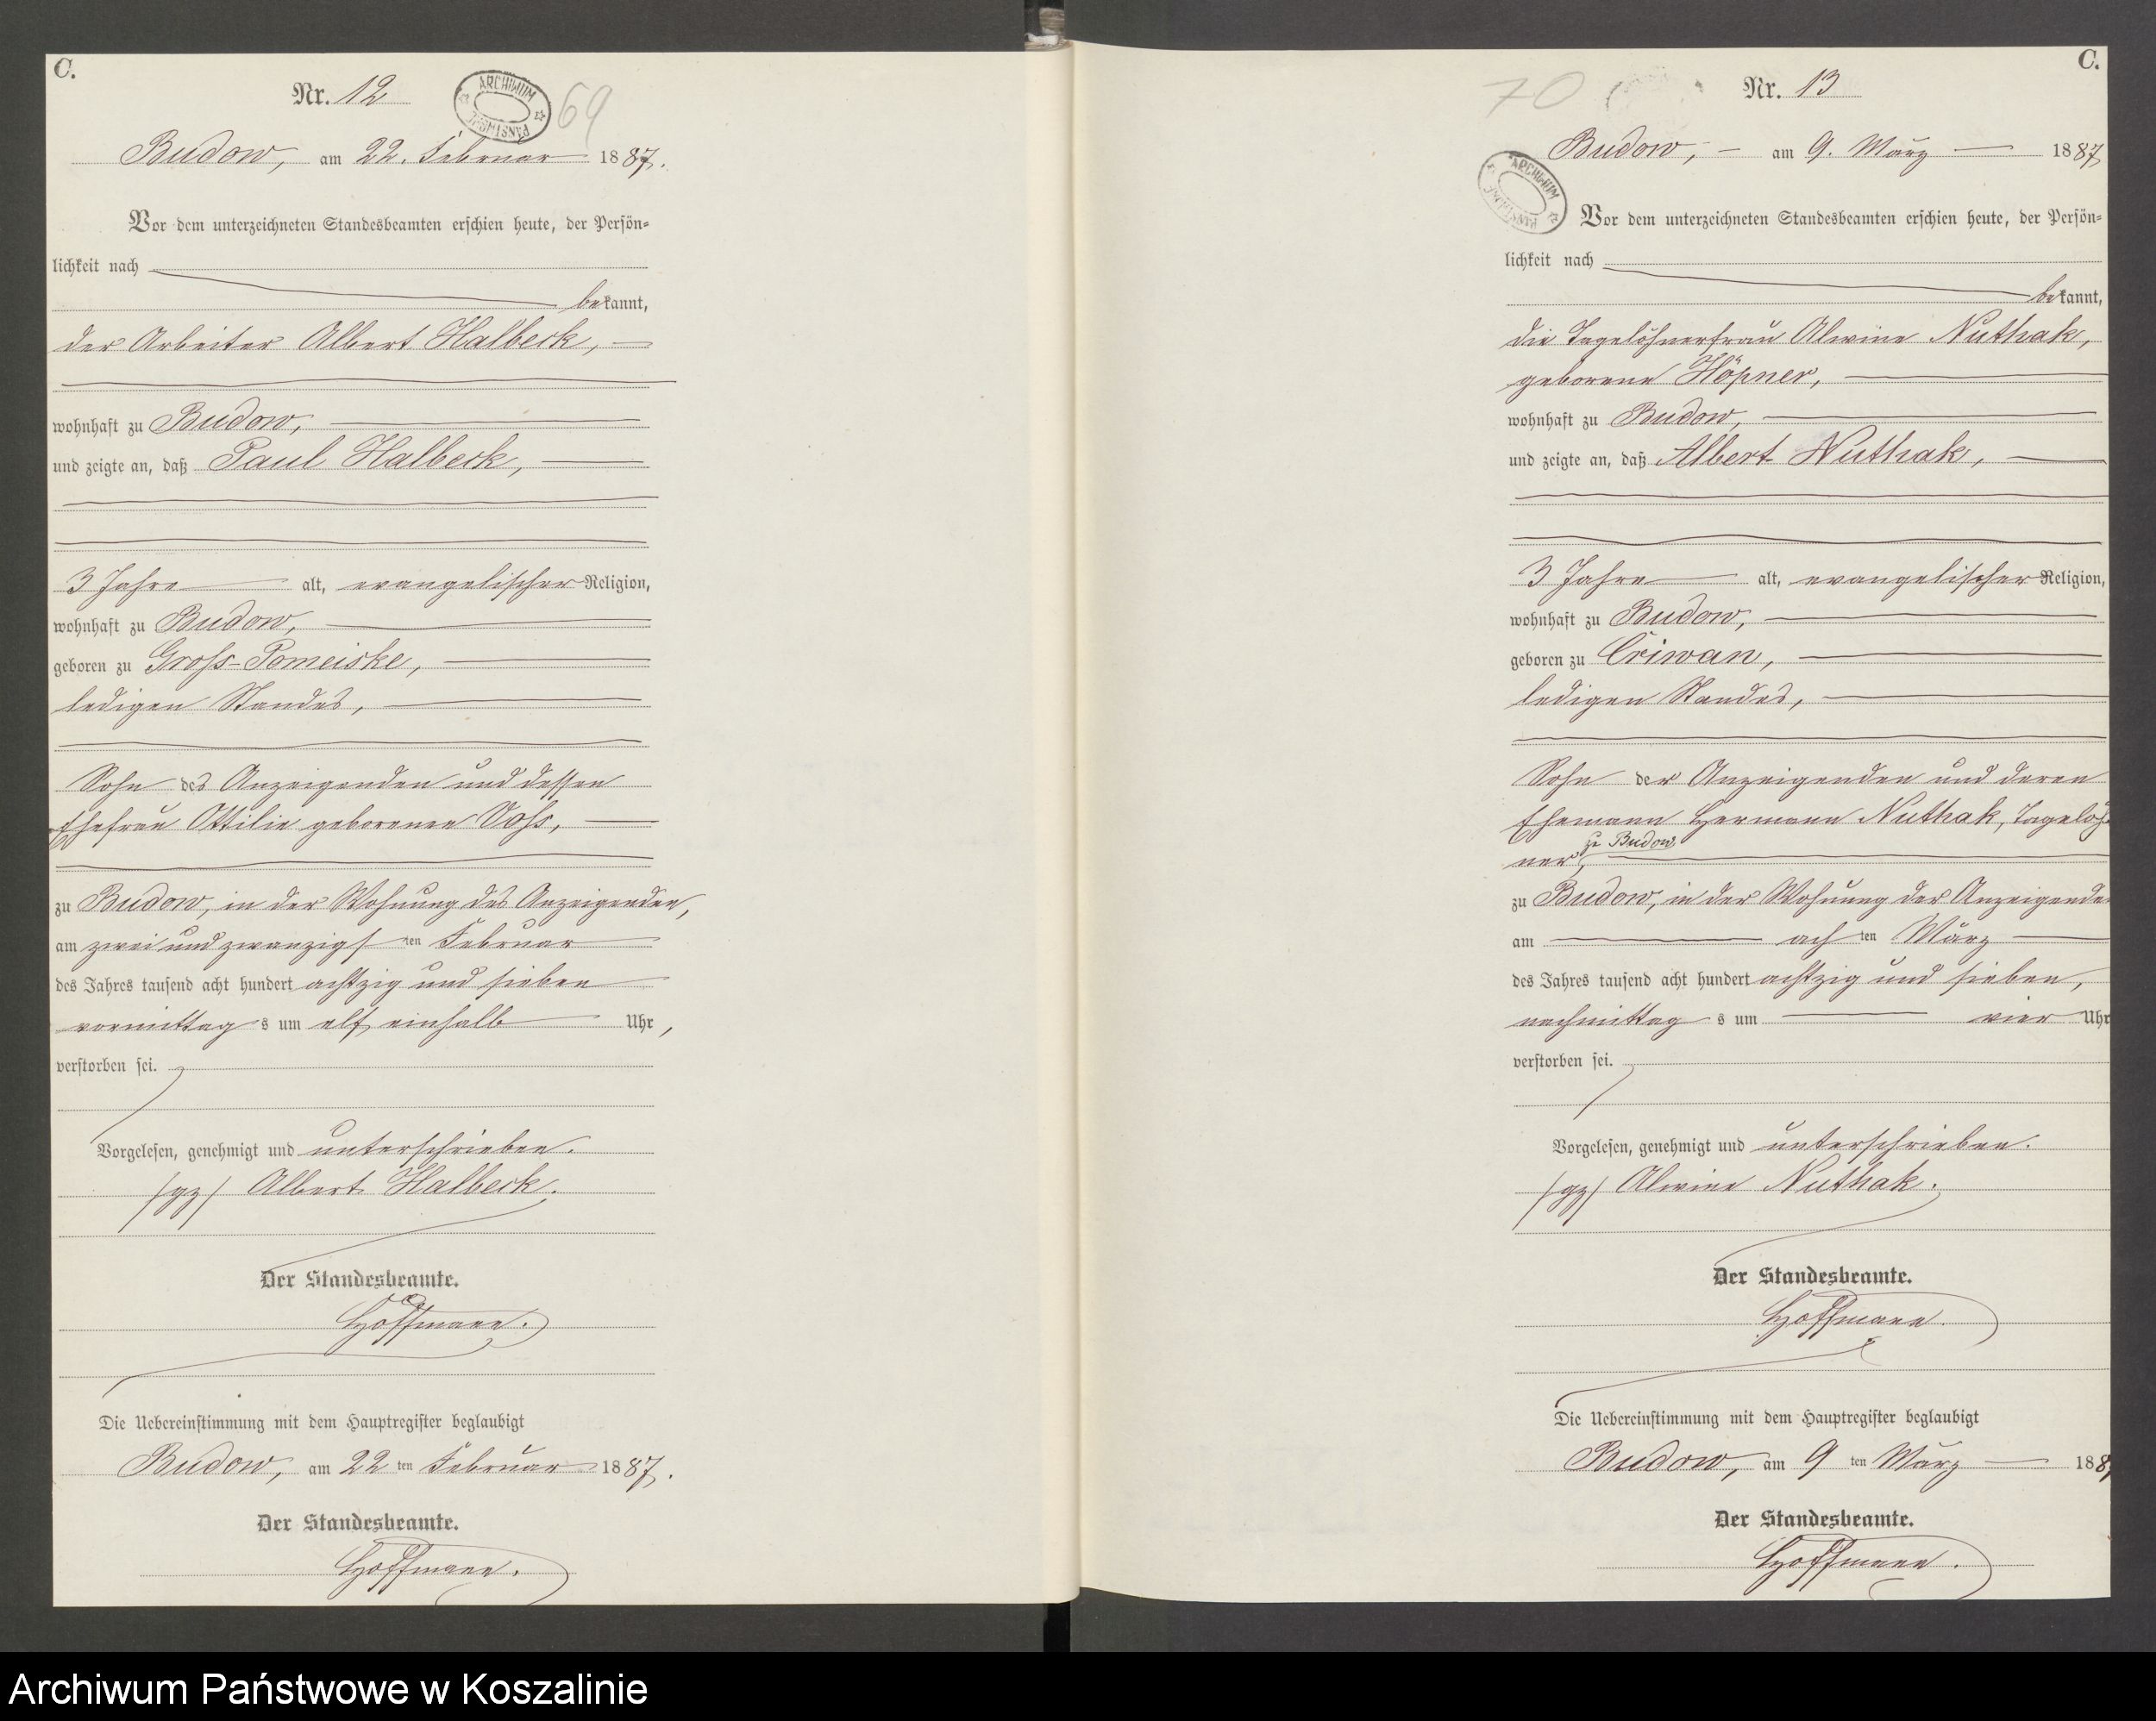 C.
Nr. 12
ARCHIWUM PAŃSTWOWE
69
Budow, am 22. Februar 1887.
Vor dem unterzeichneten Standesbeamten erschien heute, der Persön-
lichkeit nach
bekannt,
der Arbeiter Albert Halbeck,
wohnhaft zu Budow,
und zeigte an, daß Paul Halbeck,
3 Jahre alt, evangelischer Religion,
wohnhaft zu Budow,
geboren zu Groß-Pomeiske,
ledigen Standes,
Sohn des Anzeigenden und dessen
Ehefrau Ottilie geborenen Voß,
zu Budow, in der Wohnung des Anzeigenden,
am zwei und zwanzigsten Februar
des Jahres tausend acht hundert achtzig und sieben
vormittags um elf einhalb Uhr,
verstorben sei.
Vorgelesen, genehmigt und unterschrieben.
/gz/ Albert Halbeck.
Der Standesbeamte.
Hoffmann.
Die Uebereinstimmung mit dem Hauptregister beglaubigt
Budow, am 22ten Februar 1887.
Der Standesbeamte.
Hoffmann.
C.
70
Nr. 13
Budow, am 9. März 1887
ARCHIWUM PAŃSTWOWE
Vor dem unterzeichneten Standesbeamten erschien heute, der Persön-
lichkeit nach
bekannt,
die Tagelöhnerfrau Alwine Nuthak,
geborene Höpner,
wohnhaft zu Budow,
und zeigte an, daß Albert Nuthak,
3 Jahre alt, evangelischer Religion,
wohnhaft zu Budow,
geboren zu Criwan,
ledigen Standes,
Sohn der Anzeigenden und deren
Ehemann Hermann Nuthak, Tagelöh-
zu Budow
ner,
zu Budow, in der Wohnung der Anzeigenden
am achten März
des Jahres tausend acht hundert achtzig und sieben,
nachmittags um vier Uhr
verstorben sei.
Vorgelesen, genehmigt und unterschrieben.
/gz/ Alwine Nuthak.
Der Standesbeamte.
Hoffmann.
Die Uebereinstimmung mit dem Hauptregister beglaubigt
Budow, am 9ten März 1887
Der Standesbeamte.
Hoffmann.
Archiwum Państwowe w Koszalinie